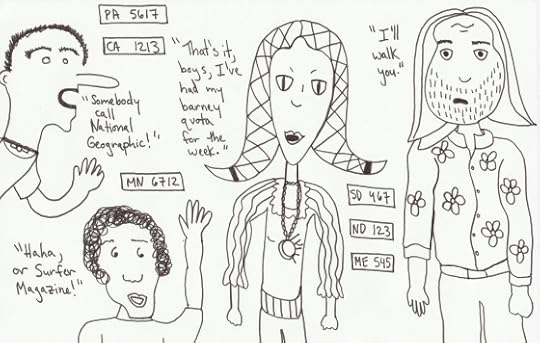 PA 5617
CA 1213
"Somebody
call
National
Geographic!"
MN 6712
"Haha,
or Surfer
Magazine!"
"That's it,
boys, I've
had my
barney
quota
for the
week."
SD 467
ND 123
ME 545
"I'll
walk
you."